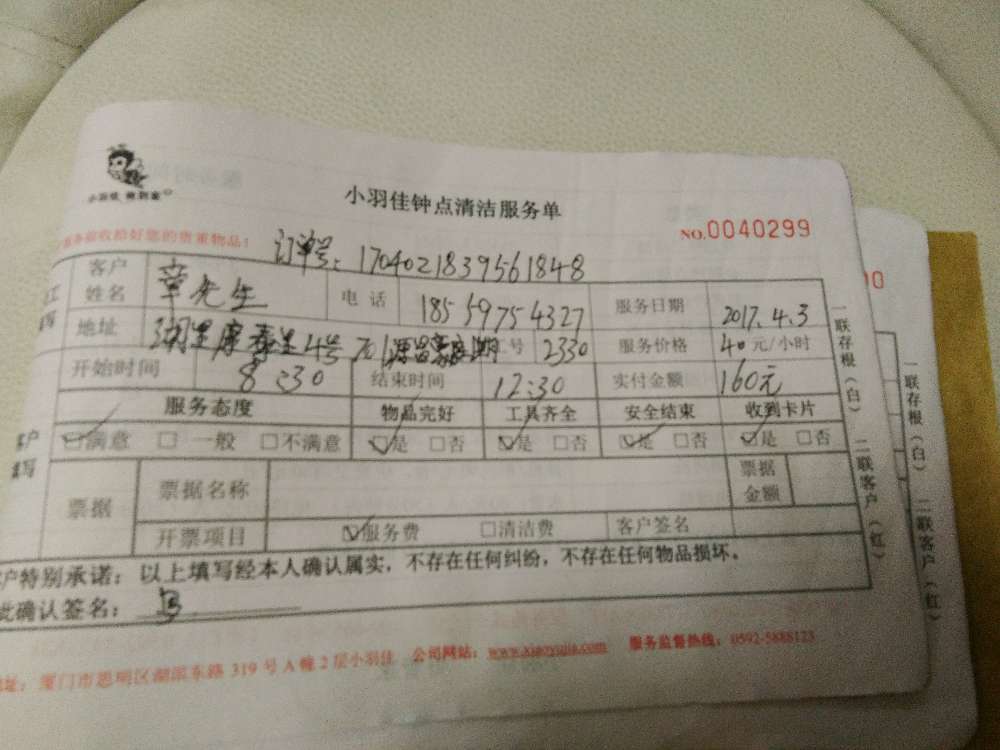 小羽佳 做到家
小羽佳钟点清洁服务单
NO.0040299
服务验收拾好您的贵重物品!
订单号: 1704021839561848
客户姓名 章先生 电话 18559754327 服务日期 2017.4.3
地址 湖里康泰里4号701 工号 2330 服务价格 40元/小时
开始时间 8:30 结束时间 12:30 实付金额 160元
服务态度 物品完好 工具齐全 安全结束 收到卡片
客户填写 ☑满意 □一般 □不满意 ☑是 □否 ☑是 □否 ☑是 □否 ☑是 □否
票据 票据名称 票据金额
开票项目 ☑服务费 □清洁费 客户签名
户特别承诺: 以上填写经本人确认属实,不存在任何纠纷,不存在任何物品损坏。
此确认签名:
地址: 厦门市思明区湖滨东路 319 号 A 幢 2 层小羽佳 公司网站: www.xiaoyujia.com 服务监督热线: 0592-5888123
一联存根(白) 二联客户(红)
00
一联存根(白) 二联客户(红)